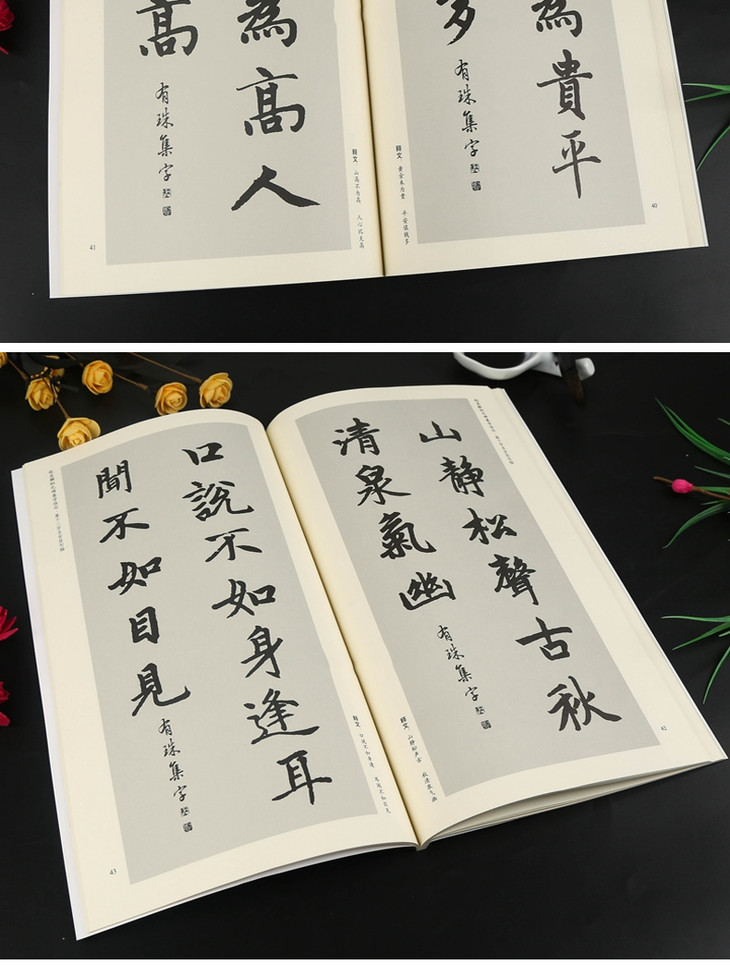 為貴平
多
有珠集字
释文：黄金未为贵 平安值钱多
40
為高人
高
有珠集字
释文：山高不为高 人心比天高
41
山静松聲古秋
清泉氣幽
有珠集字
释文：山静松声古 秋清泉气幽
42
口說不如身逢耳
聞不如目見
有珠集字
释文：口说不如身逢 耳闻不如目见
43